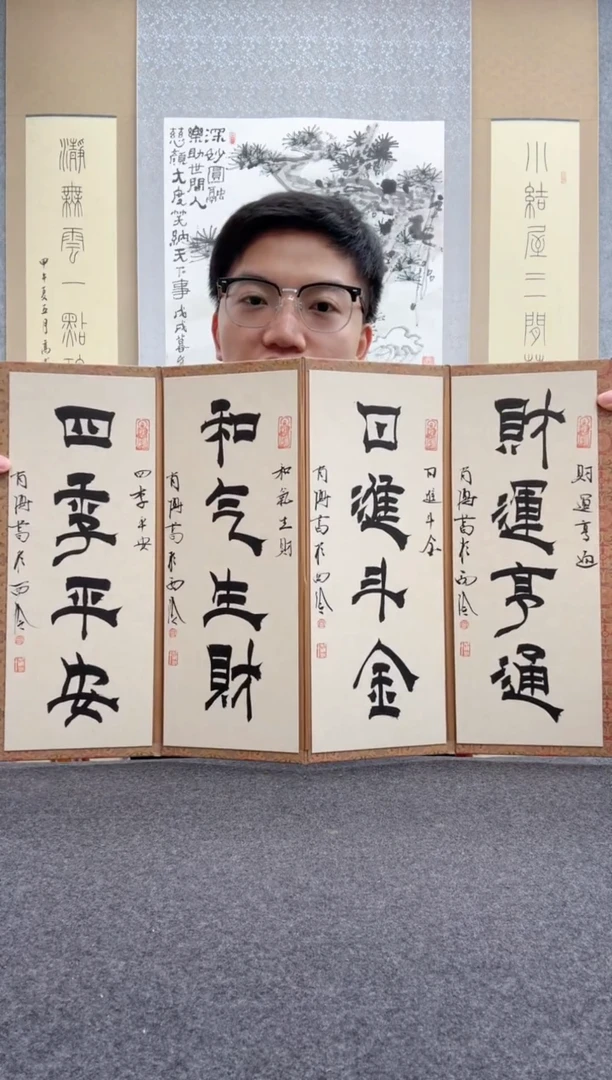 小結屋三間
深妙圓融
樂助世間人
慈顏大度笑納天下事
戊戌暮
無雲一點
甲午夏五月
財運亨通
財運亨通
於西泠
日進斗金
日進斗金
於西泠
和氣生財
和气生財
於西泠
四季平安
四季平安
於西泠